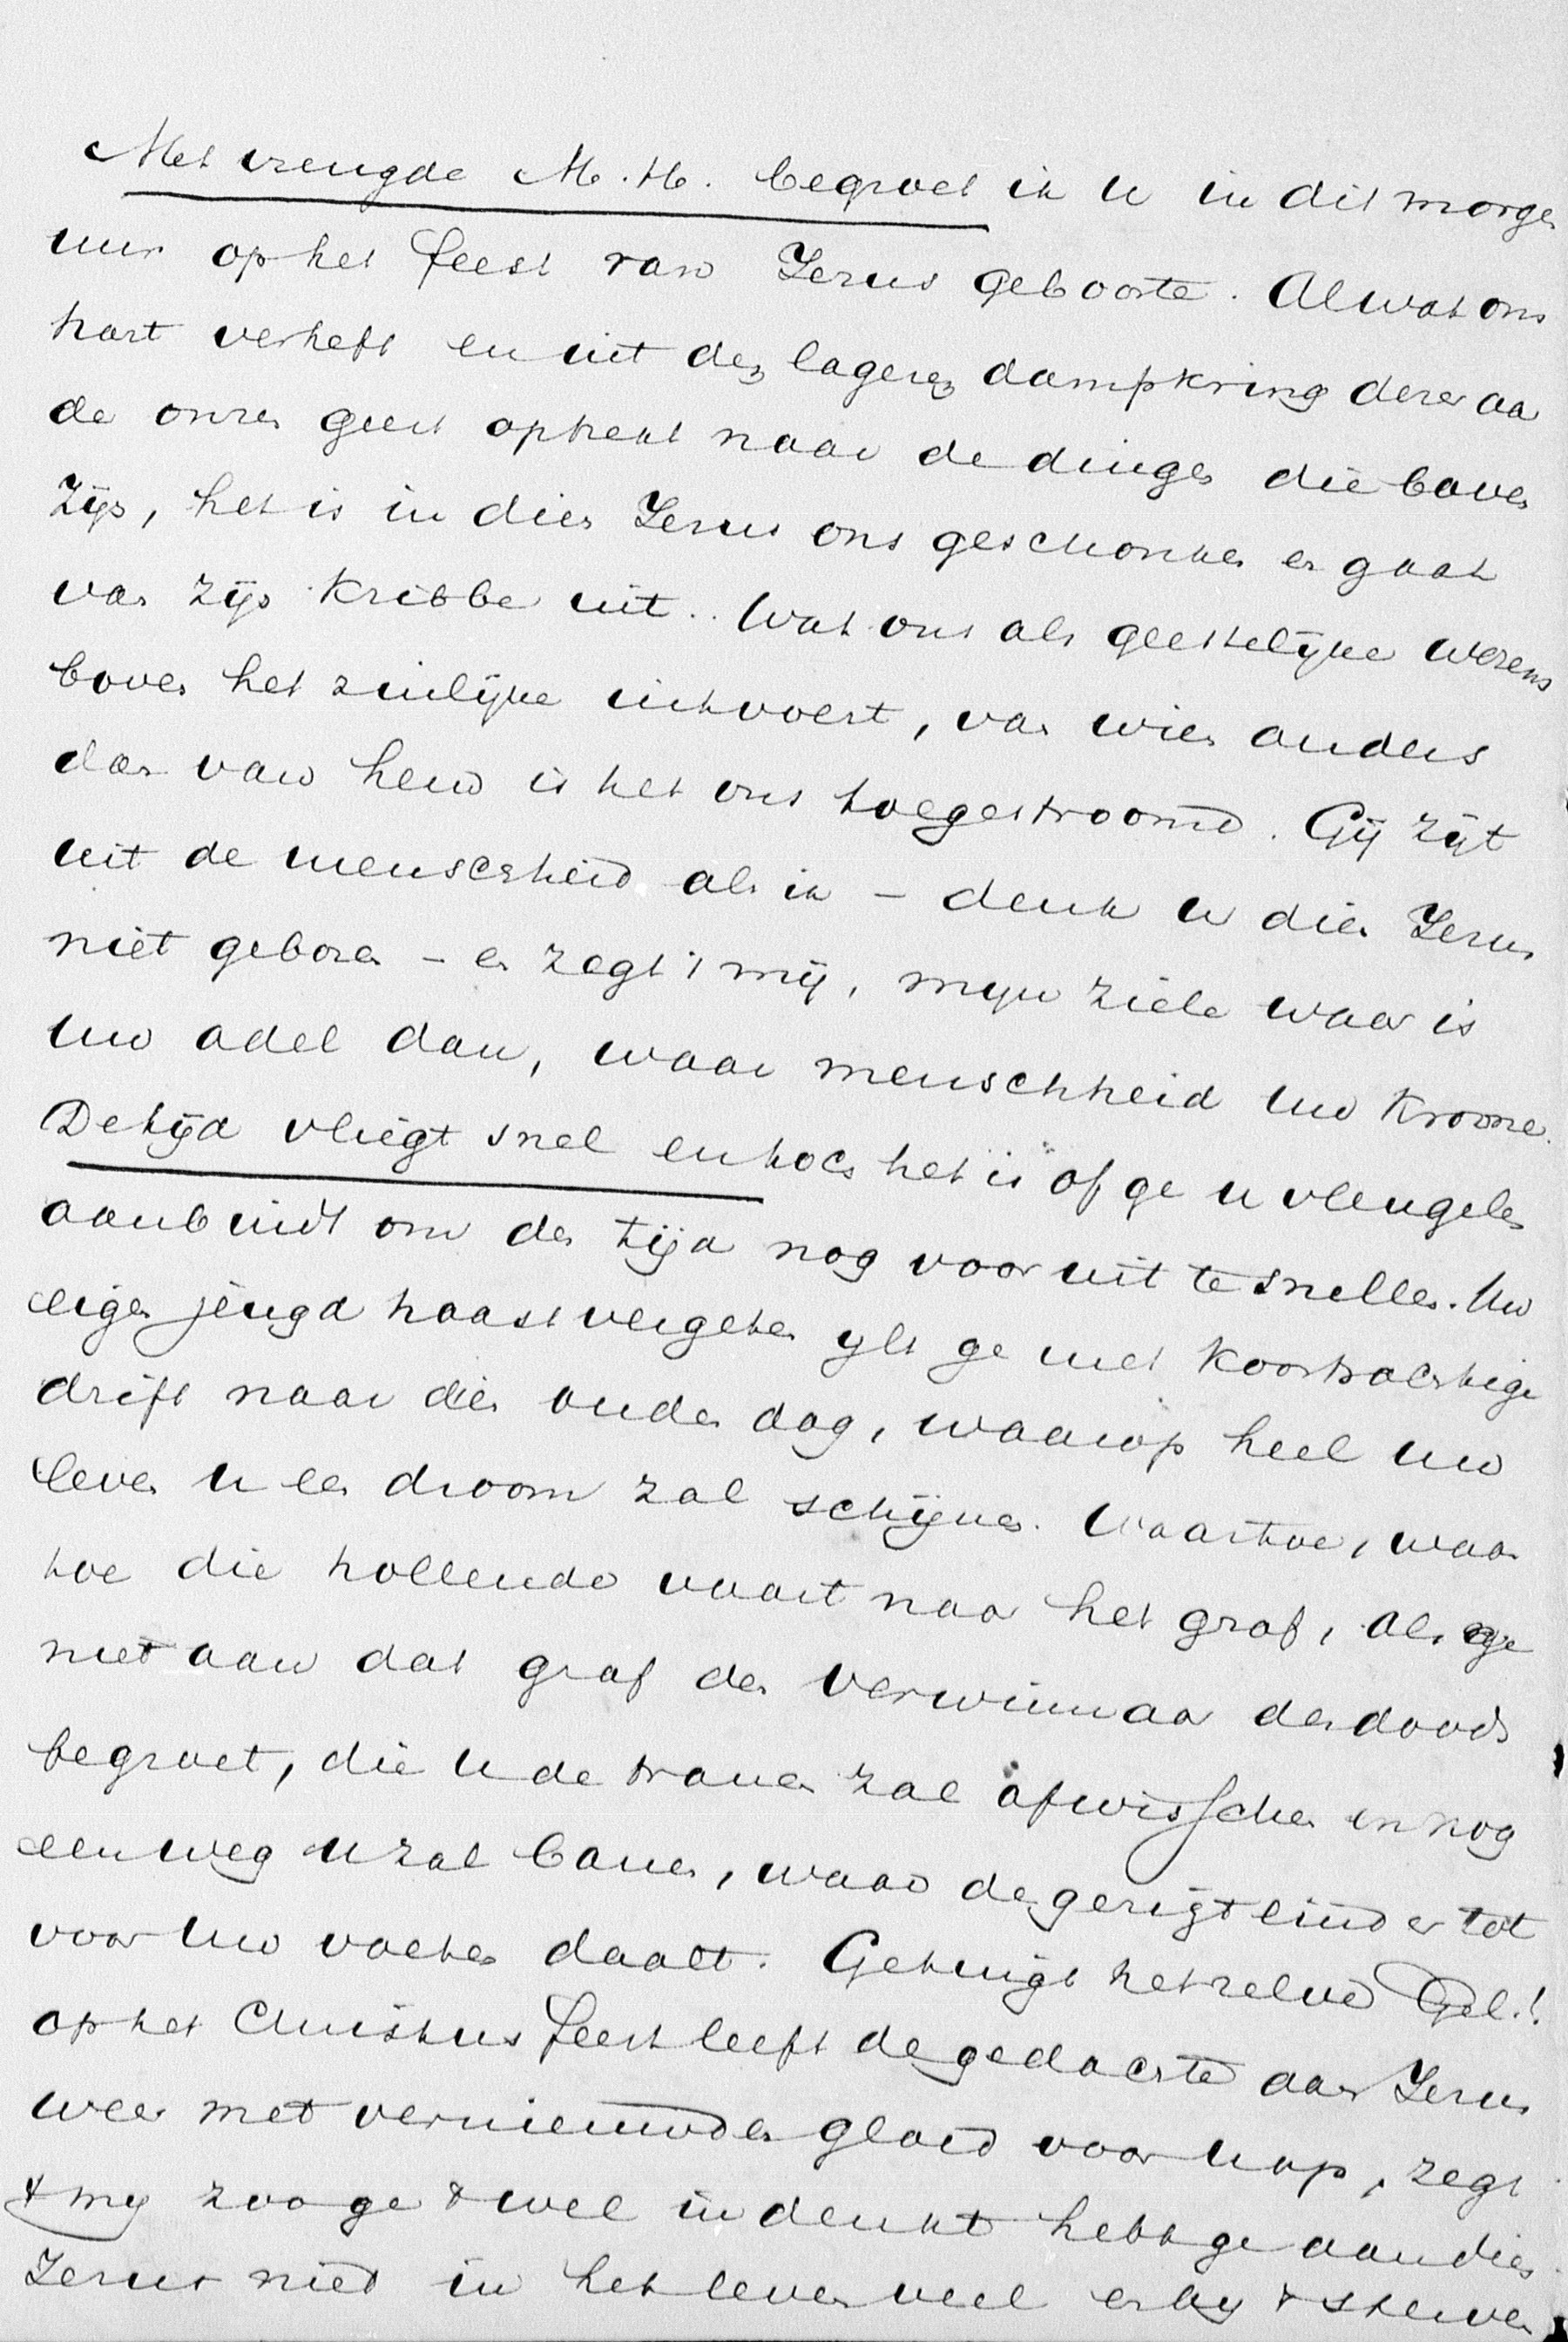 Met vreugde M. H. begroet ik u in dit morgen
uur op het feest van Jezus geboorte. Al wat ons
hart verheft en uit den lageren dampkring dezer aa
de onzen geest optrekt naar de dingen die boven
zijn, het is in dien Jezus ons geschonken en gaat
van zijn kribbe uit. Wat ons als geestelijke wezens
boven het zinlijke uitvoert, van wien anders
dan van hem is het ons toegestroomd. Gij zijt
uit de menschheid als ik – denk u dien Jezus
niet geboren – en zegt 't mij, mijn ziele waar is
uw adel dan, waar menschheid uw kroone.
De tijd vliegt snel en toch het is of ge u vleugelen
aanbindt om den tijd nog vooruit te snellen. Uw
eigen jeugd haast vergeten ylt ge met koortsachtige
drift naar dien ouden dag, waarop heel uw
leven u een droom zal schijnen. Waartoe, waar
toe die hollende vaart naar het graf, als ge
niet aan dat graf den verwinnaar des doods
begroet, die u de tranen zal afwisschen en nog
een weg u zal banen, waar de gezigteinder tot
voor uw voeten daalt. Getuigt het zelve Gel.!
op het Christus feest leeft de gedachte aan Jezus
weer met vernieuwden gloed voor u op, zegt
't mij zoo ge 't wel indenkt hebt ge aan dien
Jezus niet in het leven veel en by 't sterven